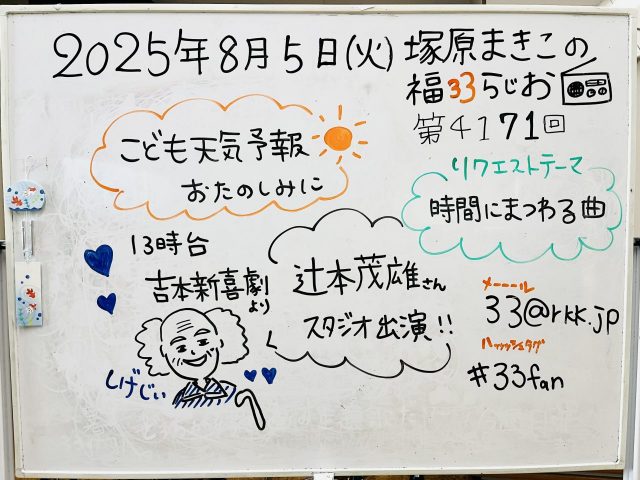 2025年8月5日(火) 塚原まきこの
福33らじお
第4171回
こども天気予報
おたのしみに
リクエストテーマ
時間にまつわる曲
13時台
吉本新喜劇
より
辻本茂雄さん
スタジオ出演!!
しげじい
メーーール
33@rkk.jp
ハッッシュタグ
#33fan